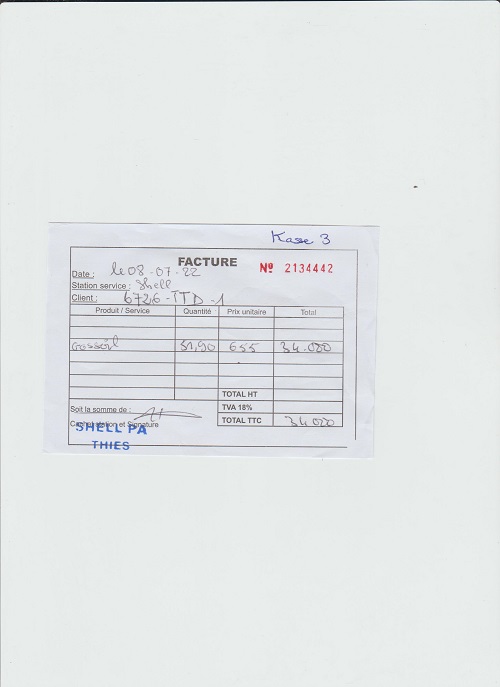 Kasse 3
FACTURE
Nº 2134442
Date : le 08-07-22
Station service : Shell
Client : 6726-TTD-1
Produit / Service Quantité Prix unitaire Total
Gassoil 51,90 655 34.000
TOTAL HT
Soit la somme de : TVA 18%
Cachet station et Signature TOTAL TTC 34000
SHELL PA
THIES